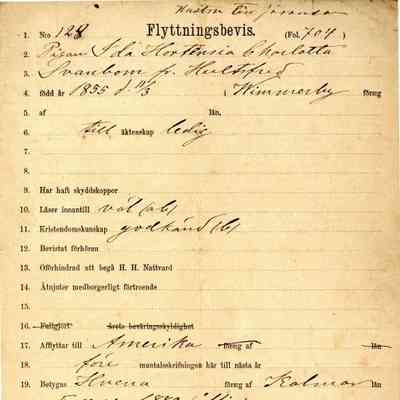 1. N:o 128 Flyttningsbevis. (Fol. 704)
2. Pigan Ida Hortensia Charlotta
3. Svanbom fr. Hultsfred
4. född år 1855 d. 11/3 i Wimmerby förs:g
5. af län.
6. till äktenskap ledig
7.
8.
9. Har haft skyddskoppor
10. Läser innantill väl (ab)
11. Kristendomskunskap godkänd (b)
12. Bevistat förhören
13. Oförhindrad att begå H. H. Nattvard
14. Åtnjuter medborgerligt förtroende
15.
16. Fullgjort årets beväringsskyldighet
17. Afflyttar till Amerika förs:g af län
18. före mantalsskrifningen här till nästa år
19. Betygas Hvena förs:g af Kalmar län